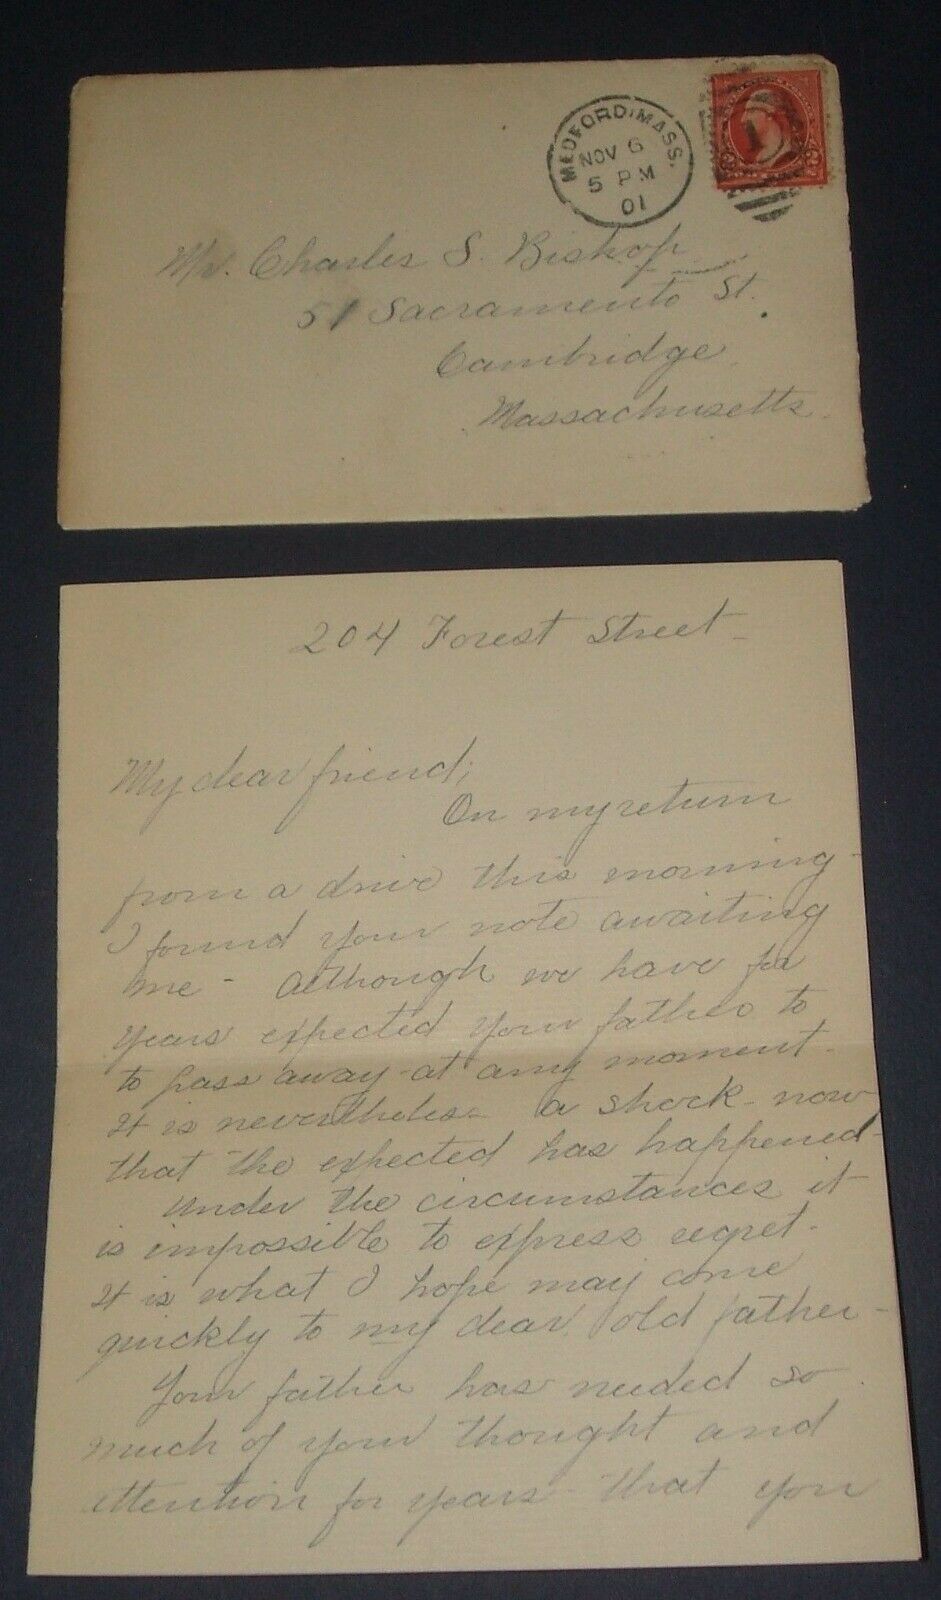 MEDFORD, MASS.
NOV 6
5 PM
01
Mr. Charles S. Bishop
51 Sacramento St.
Cambridge
Massachusetts.
204 Forest Street -
My dear friend;
On my return
from a drive this morning -
I found your note awaiting
me - Although we have for
years expected your father to
to pass away - at any moment -
It is nevertheless a shock - now
that the expected has happened -
Under the circumstances it
is impossible to express regret -
It is what I hope may come
quickly to my dear old father -
Your father has needed so
much of your thought and
attention for years - that you